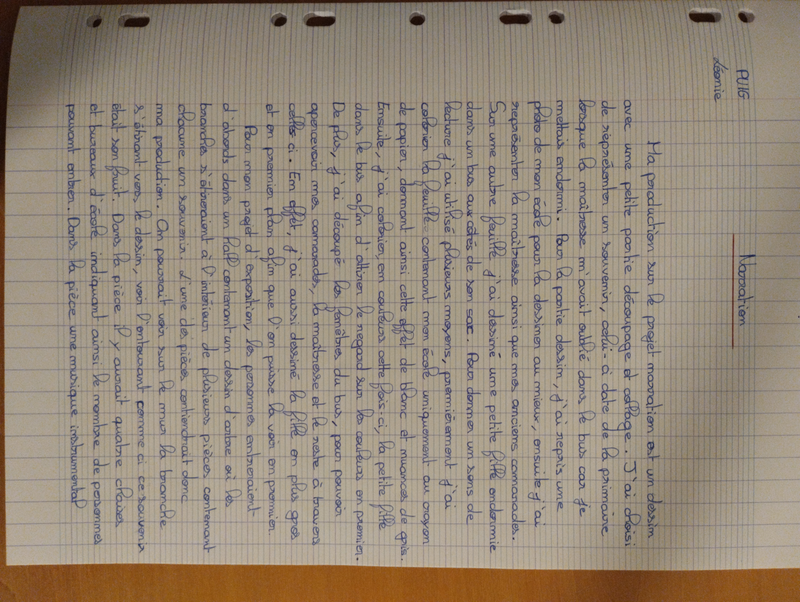 PUIG
Léonie
Narration
Ma production sur le projet narration est un dessin
avec une petite partie découpage et collage. J'ai choisi
de représenter un souvenir, celui-ci date de la primaire
lorsque la maîtresse m'avait oublié dans le bus car je
m'étais endormi. Pour la partie dessin, j'ai repris une
photo de mon école pour la dessiner au mieux, ensuite j'ai
représenter la maîtresse ainsi que mes anciens camarades.
Sur une autre feuille j'ai dessiné une petite fille endormie
dans un bus aux côtés de son sac. Pour donner un sens de
lecture j'ai utilisé plusieurs moyens, premièrement j'ai
colorier la feuille contenant mon école uniquement au crayon
de papier, donnant ainsi cette effet de blanc et nuances de gris.
Ensuite, j'ai colorier, en couleurs cette fois-ci, la petite fille
dans le bus afin d'attirer le regard sur les couleurs en premier.
De plus, j'ai découpé les fenêtres du bus, pour pouvoir
apercevoir mes camarades, la maîtresse et le reste à travers
celles ci. En effet, j'ai aussi dessiné la fille en plus gros
et en premier plan afin que l'on puisse la voir en premier
Pour mon projet d'exposition, les personnes entreraient
d'abords dans un hall contenant un dessin d'arbre où les
branches s'étireraient à l'intérieur de plusieurs pièces contenant
chacune un souvenir. L'une des pièces contiendrait donc
ma production. On pourrait voir sur le mur la branche
s'étirant vers le dessin, voir l'entourant comme ci ce souvenir
était son fruit. Dans la pièce il y aurait quatre chaises
et bureaux d'école indiquant ainsi le nombre de personnes
pouvant entrer. Dans la pièce une musique instrumental